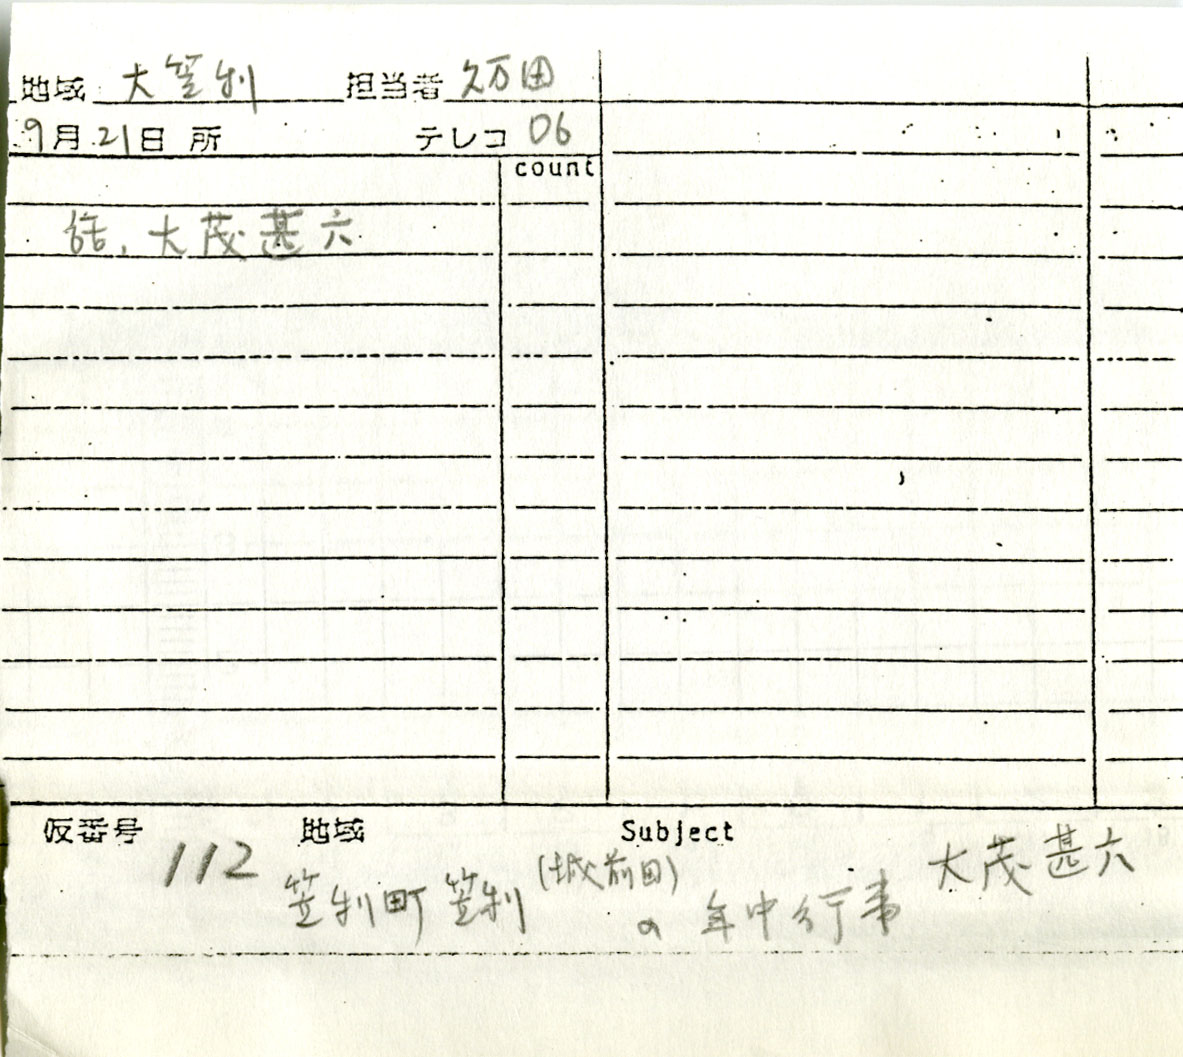 地域 大笠利 担当者 久万田
9月21日 所 テレコ 06
count
話、大茂甚六
仮番号 地域 Subject
112 笠利町笠利 (城前田) の年中行事 大茂甚六